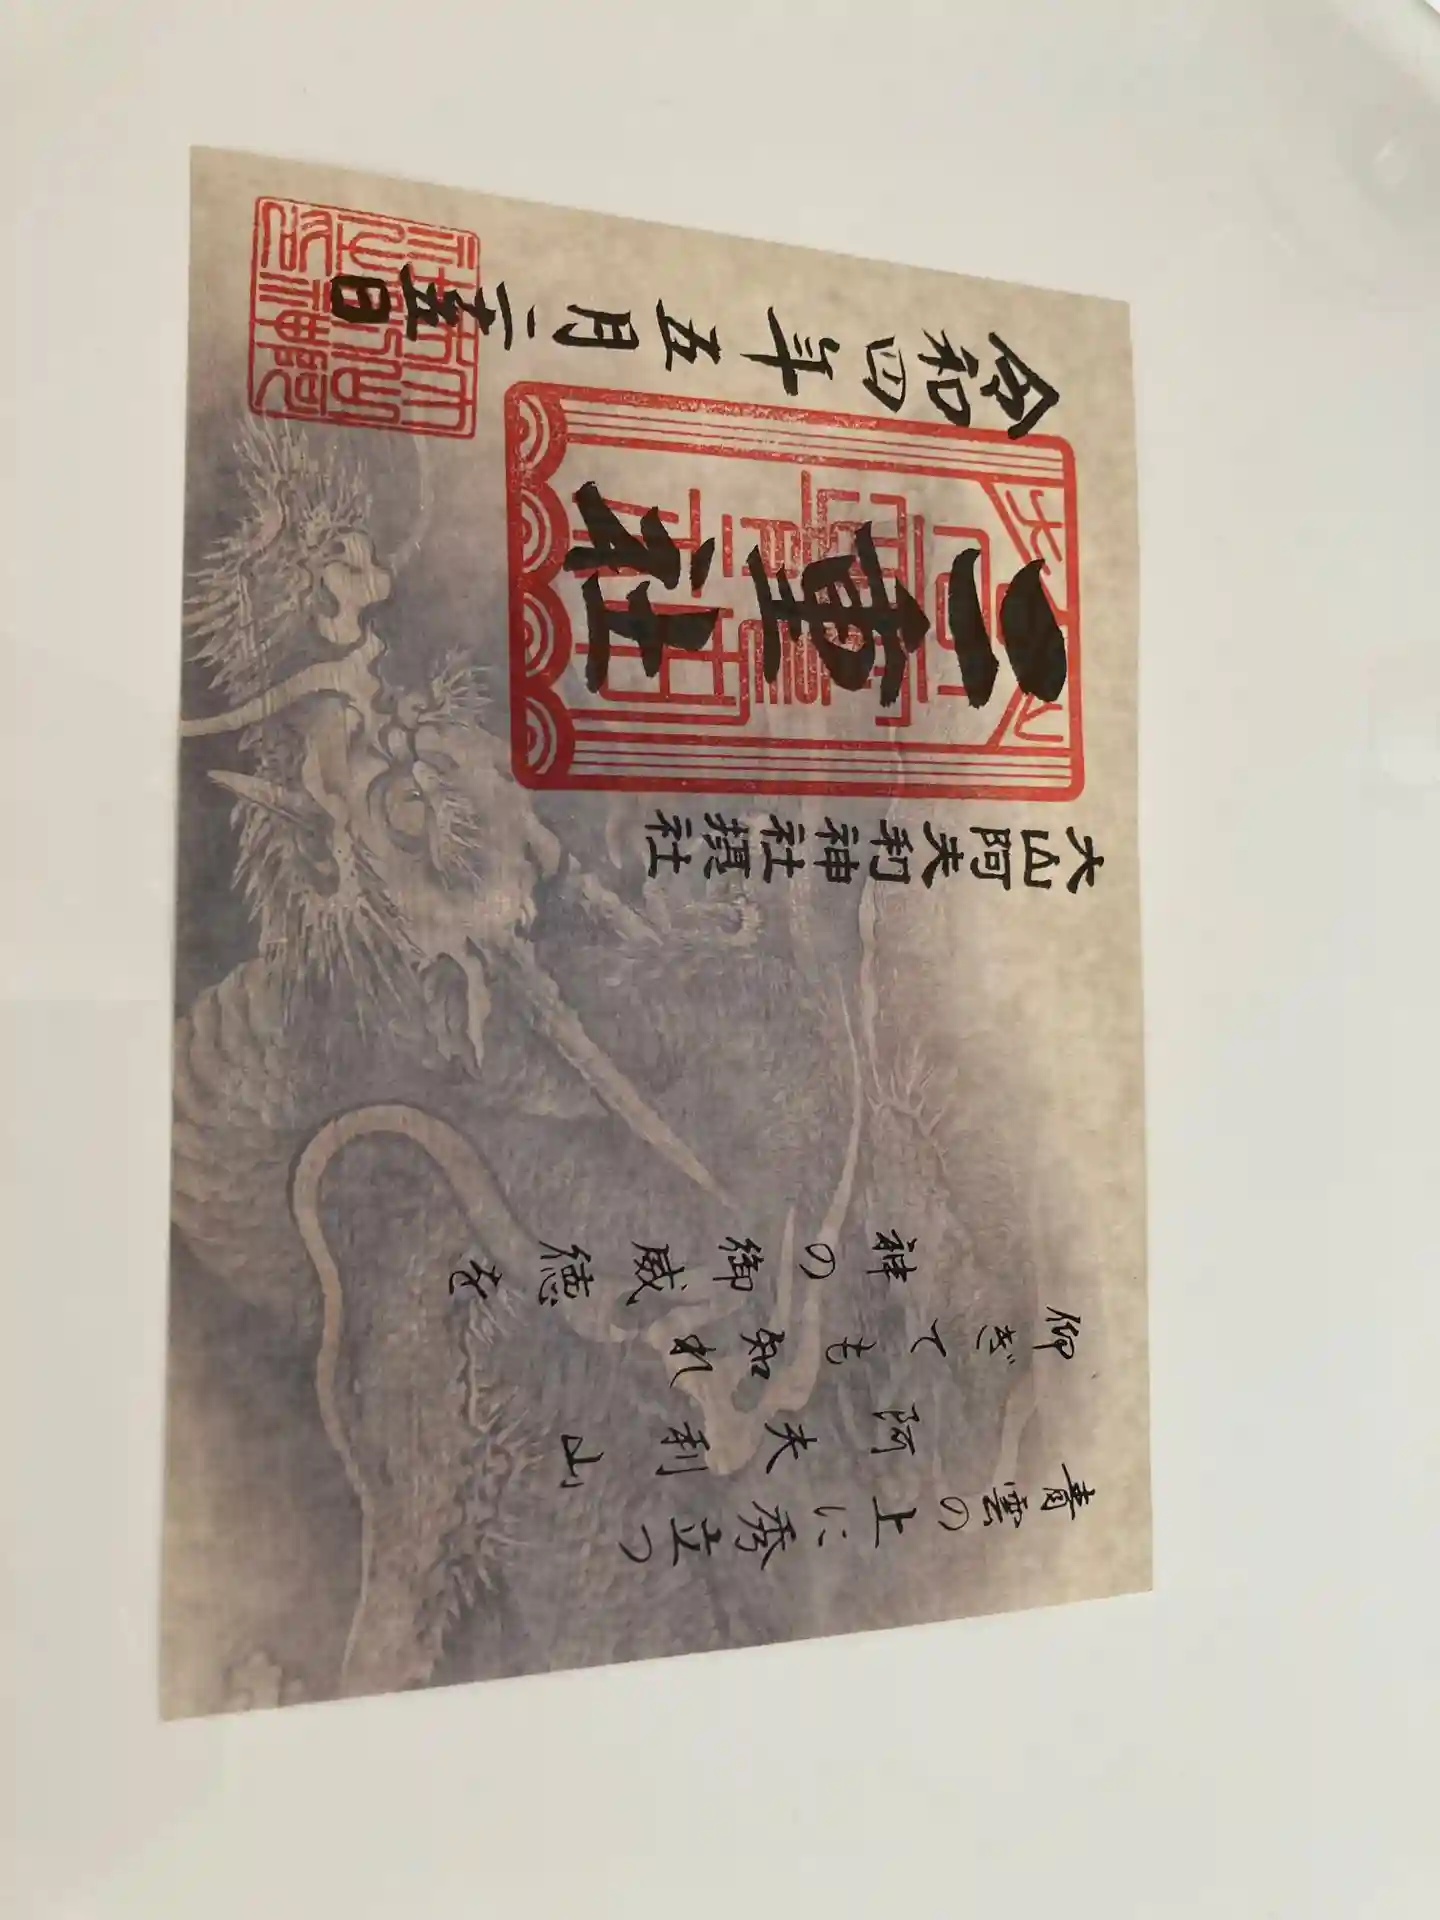 青雲の上に秀立つ
阿夫利山
仰ぎても知れ
神の御威徳を
大山阿夫利神社摂社
二重社
大山
令和四年五月二十五日